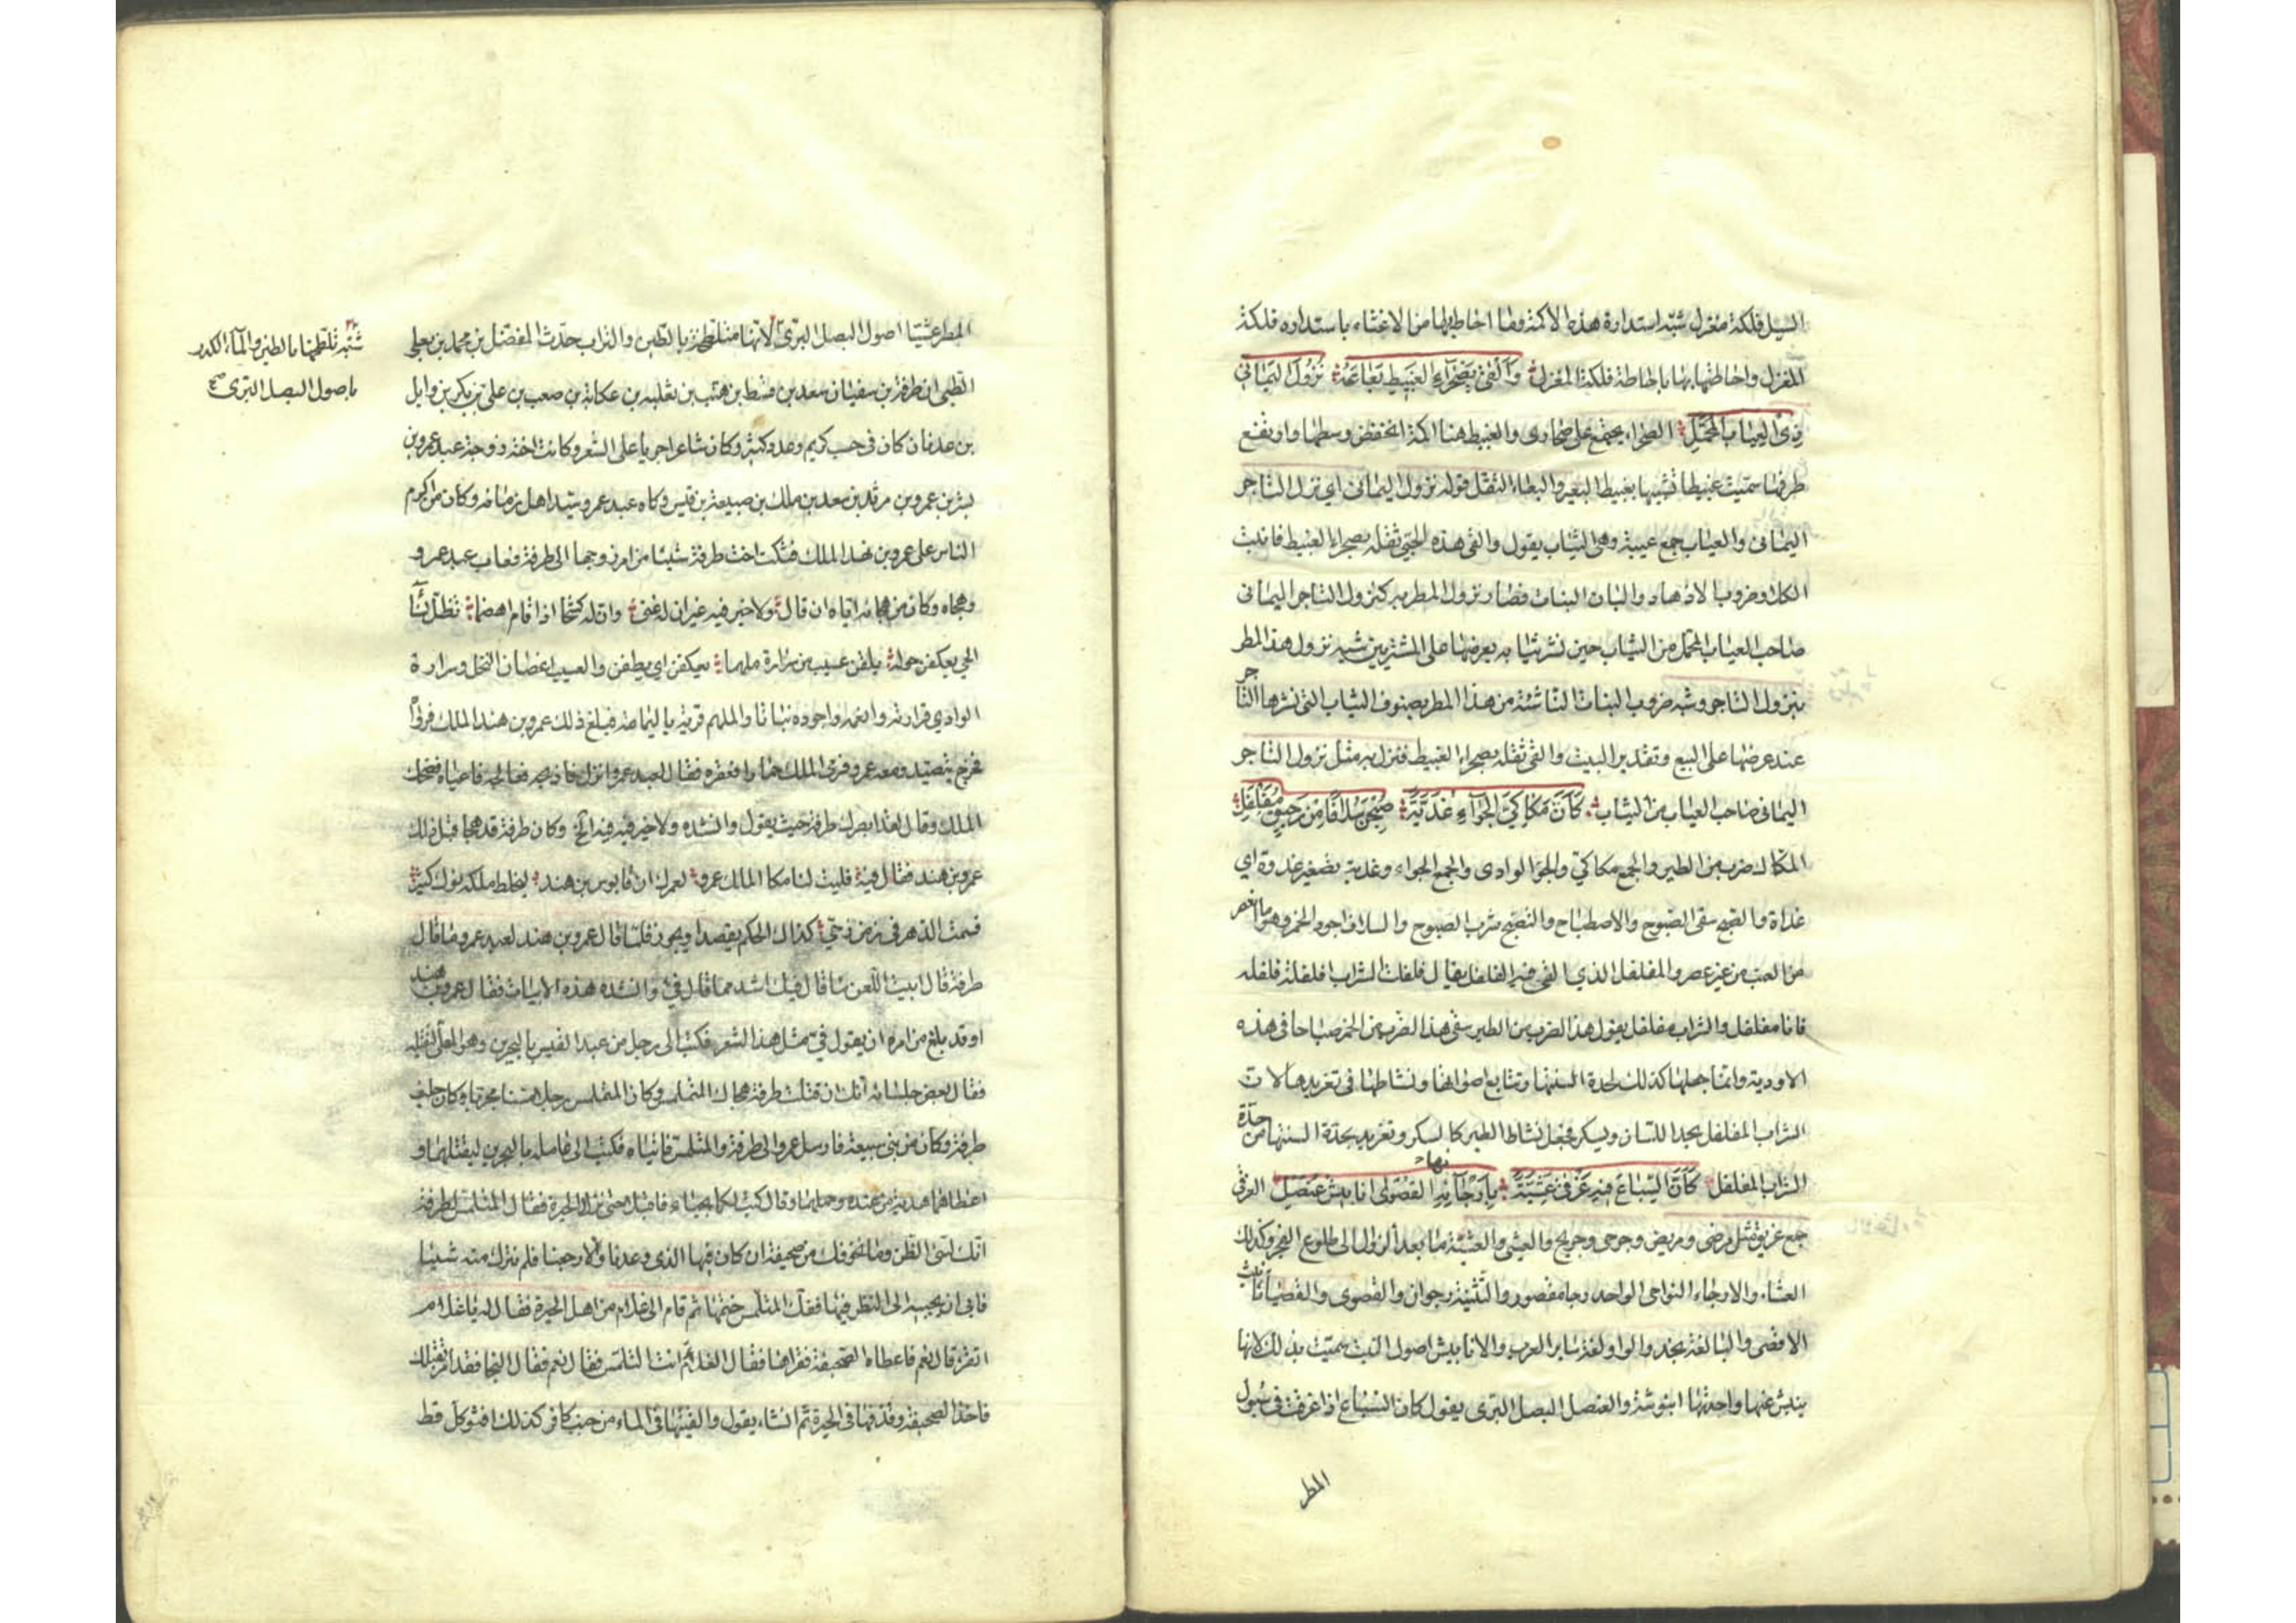 السيل فلكة مغزل شبه استدارة هذه الاكمة وما احاط بها من الاغثاء باستداره فلكة
المغزل واحاطتها بها باحاطة فلكة المغزل وَاَلْقىٰ بِصَحْرَآءِ الغَبيطِ بَعَاعَهُ نُزُولَ اليَمَاني
ذِي العِيَابِ المُحَمَّلِ الصحراء يجمع على صحارى والغبيط هنا اكمة انخفض وسطها وارتفع
طرفها سميت غبيطا تشبيها بغبيط البعير والبعاع الثقل قوله نزول اليماني اي نزل التاجر
اليماني والعياب جمع عيبة وهي الثياب يقول والقى هذه الحبي ثقله بصحراء الغبيط فانبت
الكلا وضروب الازهار والبان البنات فصار نزول المطر به كنزول التاجر اليماني
صاحب العياب المحمل من الثياب حين نشر ثيابه يعرضها على المشترين شبه نزول هذا المطر
بنزول التاجر وشبه ضروب النبات الناشئة من هذا المطر بصنوف الثياب التي نشرها التاجر
عند عرضها على البيع وتقدير البيت والقى ثقله بصحراء الغبيط فنزل به مثل نزول التاجر
اليماني صاحب العياب من الثياب كَاَنَّ مَكَاكِيَّ الجِوَآءِ غُدَيَّةً صُبِحْنَ سُلَافًا مِنْ رَحِيقٍ مُفَلْفَلِ
المكاك ضرب من الطير والجمع مكاكي والجو الوادى والجمع الجواء وغدية تصغير غدوة اي
غداة والصبح سقى الصبوح والاصطباح والتصبح شرب الصبوح والسلاف اجود الخمر وهو ما انعصر
من العنب من غير عصر والمفلفل الذي القى فيه الفلفل يقال فلفلت الشراب افلفلة فلفله
فانا مفلفل والشراب مفلفل يقول هذا الضرب من الطير سقى هذا الضرب من الخمر صباحا في هذه
الاودية وانما جعلها كذلك لحدة السنتها وتتابع اصواتها ونشاطها في تغريدها لان
الشراب المفلفل يحد اللسان ويسكر فجعل نشاط الطير كالسكر وتغريد بحدة السنتها من حدة
الشراب المفلفل كَاَنَّ السِّبَاعَ فيهِ غَرْقىٰ عَشِيَّةً بِاَرْجَآئِهِ القُصْوىٰ انابيش عُنْصُلِ الغرقى
جمع غريق مثل مرضى ومريض وجرحى وجريح والعشى والعشية ما بعد الزوال الى طلوع الفجر وكذلك
العشاء والارجاء النواحى الواحد رجا مقصور والتثنية رجوان والقصوى والقصيا تانيث
الاقصى والياء لغة نجد والواو لغة سائر العرب والانابيش اصول النبت سميت بذلك لانها
ينبش عنها واحدتها انبوشة والعنصل البصل البرى يقول كان السباع اذا غرقت في سيول
المطر
المطر عشيا اصول البصل البرى لانها متلطخة بالطين والتراب حدث المفضل بن محمد بن يعلى
الضبى ان طرفة بن سفيان سعد بن قسط بن هنب بن ثعلبه بن عكابة بن صعب بن على بن بكر بن وايل
بن عدنان كان في حسب كريم وعدد كثير وكان شاعرا جريا على الشعر وكانت اخته زوجة عبد عمرو بن
بشر بن عمرو بن مرثد بن سعد بن ملك بن ضبيعة بن قيس وكان عبد عمرو سيد اهل زمانه وكان من اكرم
الناس على عمرو بن هند الملك فشكت اخت طرفة شيئا من امر زوجها الى طرفة فعاب عبد عمرو
وهجاه وكان من هجائه اياه ان قال ولا خير فيه غير ان له غنى وان له كشحا اذا قام اهضما تظل نسآ
الحي يعكفن حوله يقلن عسيب من سرارة ملهما يعكفن اي يطفن والعسيب اغصان النخل وسرارة
الوادي قرارته وانعمه واجوده نباتا والملهم قرية باليمامة فبلغ ذلك عمرو بن هند الملك فروآ
فخرج يتصيد ومعه عمرو فرمى الملك حمارا فعقره فقال لعبد عمرو انزل فاذبحه فعالجه فاعياه فضحك
الملك وقال لقد ابصرك طرفة حيث يقول وانشده ولا خير فيه الخ وكان طرفة قد هجا قبل ذلك
عمرو بن هند فقال فيه فليت لنا مكا الملك عمرو لعمرك ان قابوس بن هند ليخلط ملكه نوك كثير
قسمت الدهر في زمن رخي كذاك الحكم يقصد او يجور فلما قال عمرو بن هند لعبد عمرو ما قال
طرفة قال ابيت اللعن ما قال فيك اشد مما قال في وانشده هذه الابيات فقال عمرو بن هند
اوقد بلغ من امره ان يقول في مثل هذا الشعر فكتب الى رجل من عبد القيس بالبحرين وهو المعلى لقتله
فقال بعض جلسائه انك ان قتلت طرفة هجاك المتلمس وكان المتلمس رجلا مسنا مجربا وكان حليف
طرفة وكان من بنى سبيعة فارسل عمرو الى طرفة والمتلمس فاتياه فكتب الى عامله بالبحرين ليقتلهما و
اعطاهما هدية من عنده وحملهما وقال كتبت لكما بحباء فاقبلا حتى نزلا الحيرة فقال المتلمس لطرفة
انك لتى الظن وما نخوفك من صحيفة ان كان فيها الذي وعدنا والا رجعنا فلم نترك منه شيئا
فابى ان يجيبه الى النظر فيها ففك المتلمس ختمها ثم قام الى غلام من اهل الحيرة فقال له يا غلام
اتقرء قال نعم فاعطاه الصحيفة فقراها فقال الغلام انت المتلمس فقال نعم فقال النجا فقد امر بقتلك
فاخذ الصحيفة وقذفها في الحيرة ثم انشاء يقول والقيتها في الماء من جنب كافر كذلك اقنو كل قط
شبه تلطخها بالطين والمآء الكدر
باصول البصل البرى صح